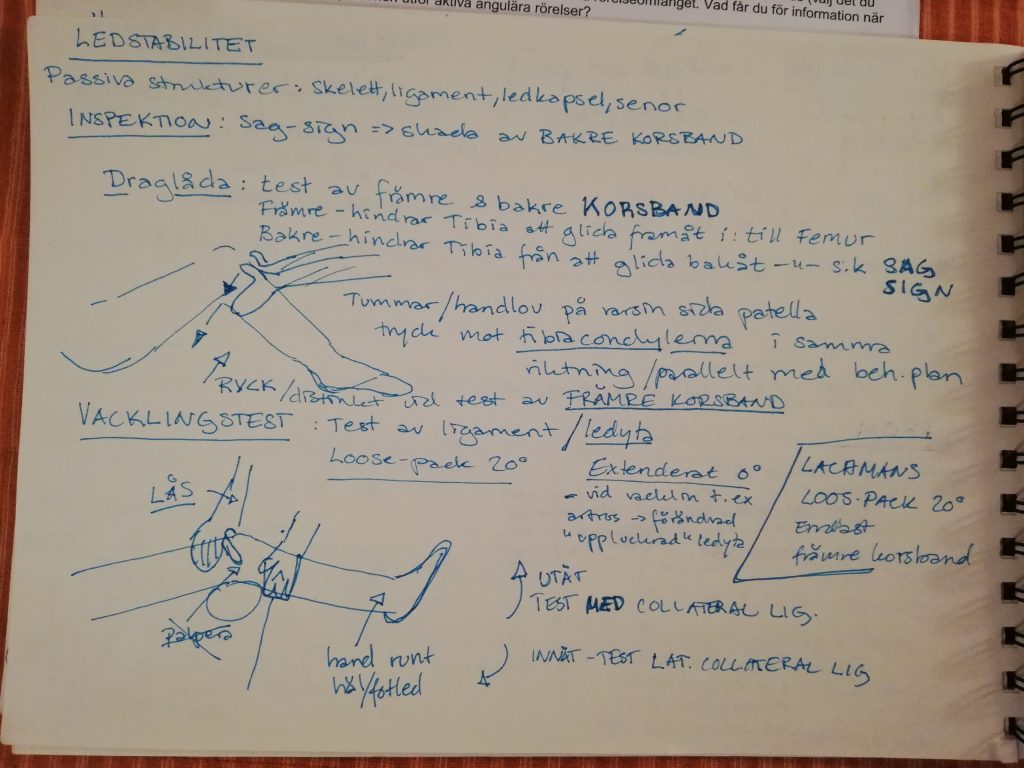 rörelseomfånget. Vad får du för information när
utför aktiva angulära rörelser?
LEDSTABILITET
Passiva strukturer: skelett, ligament, ledkapsel, senor
INSPEKTION: Sag-sign => skada av BAKRE KORSBAND
Draglåda: test av främre & bakre KORSBAND
Främre - hindrar Tibia att glida framåt i: till Femur
Bakre - hindrar Tibia från att glida bakåt -"- s.k SAG
SIGN
Tummar/handlov på varsin sida patella
tryck mot tibiacondylerna i samma
riktning/parallelt med beh.plan
RYCK/distinkt vid test av FRÄMRE KORSBAND
VACKLINGSTEST: Test av ligament/ledyta
Loose-pack 20°
Extenderat 0°
- vid vacklin t.ex
artros -> förändrad
"uppluckrad" ledyta
LACHMANS
LOOS-PACK 20°
Endast
främre korsband
LÅS
Palpera
hand runt
häl/fotled
UTÅT
TEST MED COLLATERAL LIG.
INNÅT - TEST LAT. COLLATERAL LIG